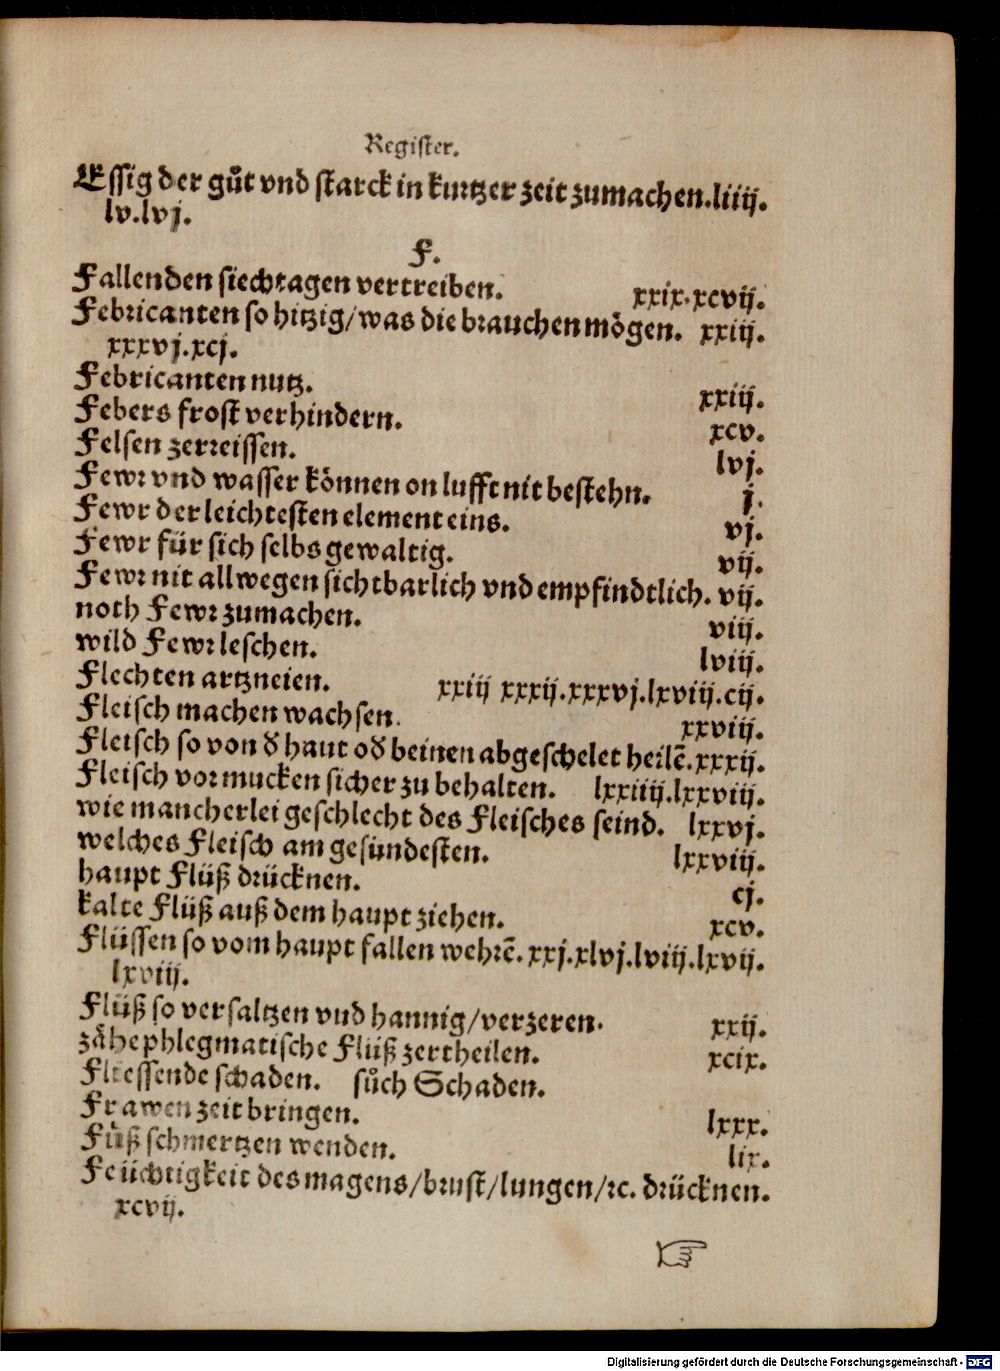 Register.
Essig der gůt vnd starck in kurtzer zeit zumachen. liiij.
lv. lvj.
F.
Fallenden siechtagen vertreiben. xxix. xcvij.
Febricanten so hitzig/ was die brauchen mögen. xxiij.
xxxvj. xcj.
Febricanten nutz. xxiij.
Febers frost verhindern. xcv.
Felsen zerreissen. lvj.
Fewr vnd wasser können on lufft nit bestehn. j.
Fewr der leichtesten element eins. vj.
Fewr für sich selbs gewaltig. vij.
Fewr nit allwegen sichtbarlich vnd empfindtlich. vij.
noth Fewr zumachen. viij.
wild Fewr leschen. lviij.
Flechten artzneien. xxiij xxxij. xxxvj. lxviij. cij.
Fleisch machen wachsen. xxviij.
Fleisch so von d̕ haut od̕ beinen abgeschelet heilẽ. xxxij.
Fleisch vor mucken sicher zu behalten. lxxiiij. lxxviij.
wie mancherlei geschlecht des Fleisches seind. lxxvj.
welches Fleisch am gesündesten. lxxviij.
haupt Flüß drücknen. cj.
kalte Flüß auß dem haupt ziehen. xcv.
Flüssen so vom haupt fallen wehrẽ. xxj. xlvj. lviij. lxvij.
lxviij.
Flüß so versaltzen vnd hannig/ verzeren. xxij.
zåhe phlegmatische Flüß zertheilen. xcix.
Fliessende schaden. sůch Schaden.
Frawen zeit bringen. lxxx.
Fůß schmertzen wenden. lix.
Feüchtigkeit des magens/ brust/ lungen/ ꝛc. drücknen.
xcvij.
Digitalisierung gefördert durch die Deutsche Forschungsgemeinschaft - DFG